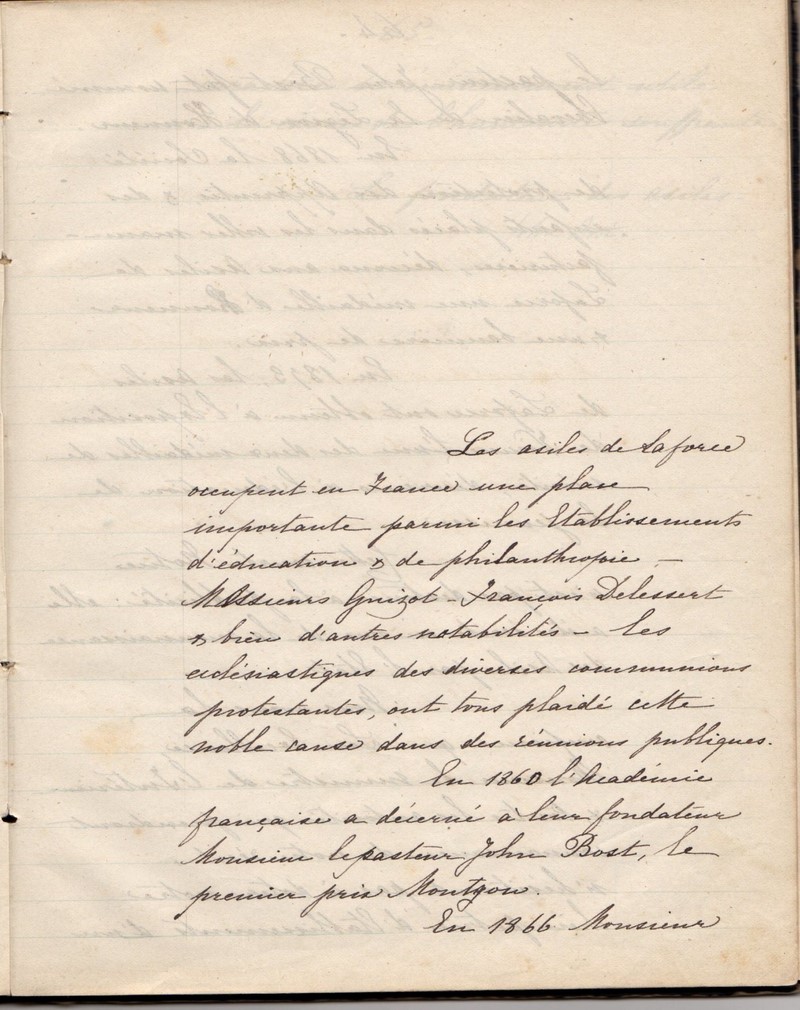 Les asiles de Laforce
occupent en France une place
importante parmi les Etablissements
d'éducation & de philanthropie —
Messieurs Guizot - François Delessert
& bien d'autres notabilités - les
ecclésiastiques des diverses communions
protestantes, ont tous plaidé cette
noble cause dans des réunions publiques.
En 1860 l'Académie
française a décerné à leur fondateur
Monsieur le pasteur John Bost, le
premier prix Montyon.
En 1866 Monsieur